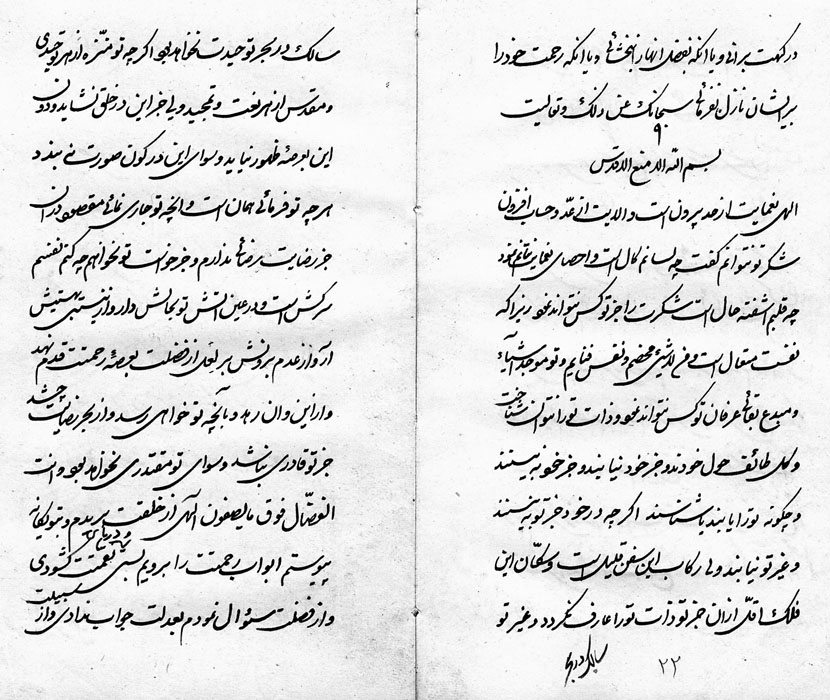 در کهت برانی و یا آنکه بفضل انها را بخشائی و یا آنکه رحمت خود را
بر ایشان نازل فرمائی سبحانک عن ذلک و تعالیت
۹۰
بسم الله الامنع الاقدس
الهی نعمایت از حد بیرون است و الایت از عد و حساب افزون
شکر تو نتوانم گفت چه لسانم کال است و احصای نعمایت نتوانم نمود
چه قلبم اشفته حال است شکرت را جز تو کس نتواند نمود زیرا که
نعمت متعال است و من لاشیئ محضم و نفس فنایم و تو موجد اشیاء
و مبدع بقائی عرفان تو کس نتواند نمود و ذات تو را نتوان شناخت
و کل طائف حول خودند و جز خود نیابند و جز خود نبینند
و چگونه تو را یابند یا شناسند اگر چه در خود جز تو نبینند
و غیر تو نیابند ولی رکاب این سفن قلیل است و سکان این
فلک اقل از ان جز تو ذات تو را عارف نگردد و غیر تو
سالک در بحر
۲۲
سالک در بحر توحیدت نخواهد بود اگر چه تو منزه از هر توحیدی
و مقدس از هر نعت و تمجید ولی جز این در خلق نشاید و دون
این بعرصه ظهور نیاید و سوای این در کون صورت نبندد
هر چه تو فرمائی همان است و بانچه تو جاری نمائی مقصود در ان
جز رضایت رضائی ندارم و جز خواست تو نخواهم چه کنم نفسم
سرکش است و در عین اتش و تو نجاتش دار و از نیستی بهستیش
آر و از عدم برونش بر تعدی از فضلت بعرصه رحمتت قدم نهد
و از این و ان رهد و بآنچه تو خواهی رسد و از بحر رضایت چشد
جز تو قادری نباشد و سوای تو مقتدری نخواهد بود و انت
الفضال فوق ما یصفون الهی از خلقت بریدم و بتو یگانه
پیوستم ابواب رحمتت را برویم بستی و دریای نعمتت گشودی
و از فضلت سئوال نمودم بعدلت جواب ندادی و از سبیلت